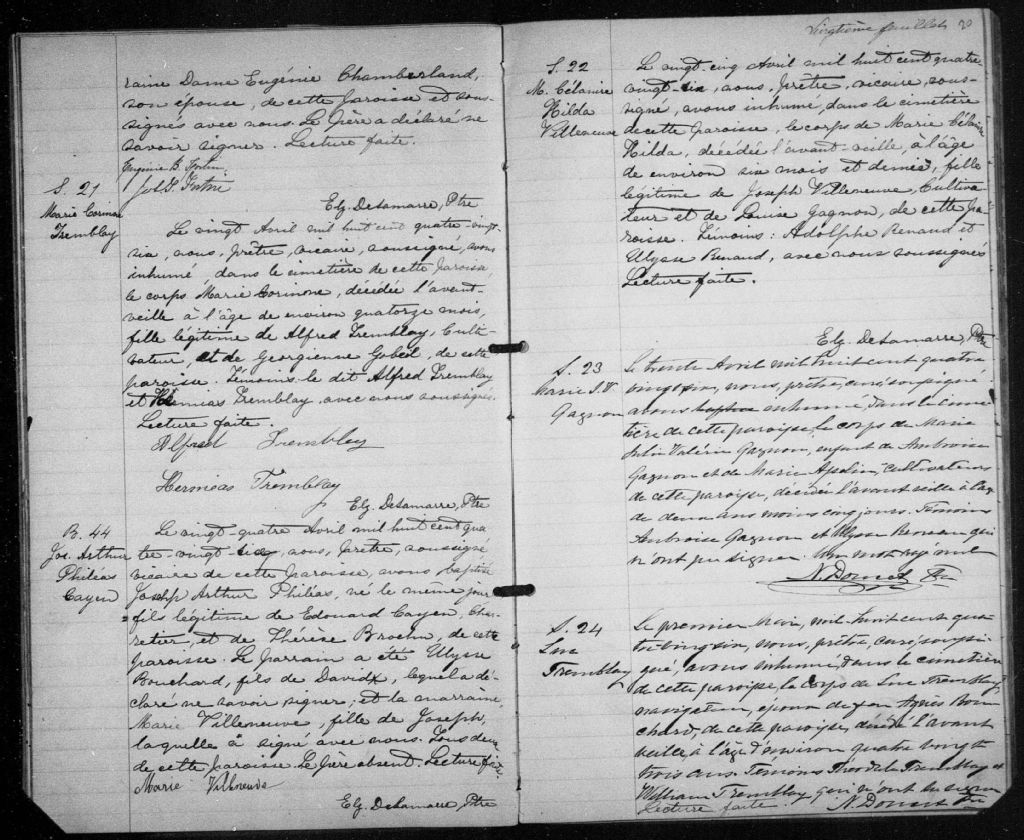 raine Dame Eugénie Chamberland,
son épouse, de cette paroisse et sous-
signés avec nous. Le père a déclaré ne
savoir signer. Lecture faite.
Eugénie B. Fortin
Jos. S. Fortin
Elz. DeLamarre, Ptre
S. 21
Marie Corinne
Tremblay
Le vingt Avril mil huit cent quatre-vingt-
six, nous, prêtre, vicaire, soussigné, avons
inhumé, dans le cimetière de cette paroisse,
le corps Marie Corinone, décédée l'avant-
veille à l'âge de environ quatorze mois,
fille légitime de Alfred Tremblay, Culti-
vateur, et de Georgienne Gobeil, de cette
paroisse. Témoins le dit Alfred Tremblay
et Herméas Tremblay, avec nous soussignés.
Lecture faite.
Alfred Tremblay
Herméas Tremblay
Elz. DeLamarre, Ptre
B. 44
Jos. Arthur
Philéas
Cayen
Le vingt-quatre Avril mil huit cent qua
tre-vingt six, nous, prêtre, soussigné
vicaire de cette paroisse, avons baptisé
Joseph Arthur Philéas, né le même jour
fils légitime de Edouard Cayen, Char-
retier, et de Thérèse Brochu, de cette
paroisse. Le parrain a été Ulysse
Bouchard, fils de David, lequel a dé-
claré ne savoir signer; et la marraine
Marie Villeneuve, fille de Joseph,
laquelle a signé avec nous. Tous deux
de cette paroisse. Le père absent. Lecture faite.
Marie Villeneuve
Elz. DeLamarre, Ptre
Vingtième feuillet 20
S. 22
M. Célanire
Hilda
Villeneuve
Le vingt-cinq Avril mil huit cent quatre
vingt-six, nous, prêtre, vicaire, sous-
signé, avons inhumé, dans le cimetière
de cette paroisse, le corps de Marie Célanire
Hilda, décédée l'avant-veille, à l'âge
de environ six mois et demie, fille
légitime de Joseph Villeneuve, Cultiva-
teur et de Louise Gagnon, de cette pa-
roisse. Témoins: Adolphe Renaud et
Ulysse Renaud, avec nous soussignés
Lecture faite.
Elz. DeLamarre, Ptre
S. 23
Marie J. V.
Gagnon
Le trente Avril mil huit cent quatre
vingt six, nous, prêtre, curé soussigné
avons baptisé inhumé, dans le cime
tière de cette paroisse, le corps de Marie
Julie Valérie Gagnon, enfant de Ambroise
Gagnon et de Marie cultivateurs
de cette paroisse, décédée l'avant veille à l'age
de deux ans moins cinq jours. Témoins
Ambroise Gagnon et Ulysse qui
n'ont pu signer. Un mot rayé nul
N. Doucet Ptre
S. 24
Luc
Tremblay
Le premier Mai, mil huit cent qua
tre vingt six, nous, prêtre, curé, soussi-
gné, avons inhumé, dans le cimetière
de cette paroisse, le corps de Luc Tremblay,
navigateur, époux de feu Agnès Bou
chard, de cette paroisse, décédé l'avant
veille, à l'âge d'environ quatre vingt
trois ans. Témoins Théodule Tremblay et
William Tremblay qui n'ont su signer
Lecture faite. N. Doucet Ptre